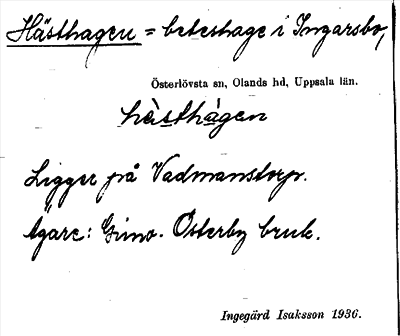 Hästhagen = beteshage i Ingarsbo,
Österlövsta sn, Olands hd, Uppsala län.
hàsthágen
Ligger på Vadmanstorp.
Ägare: Gimo-Österby bruk.
Ingegärd Isaksson 1936.